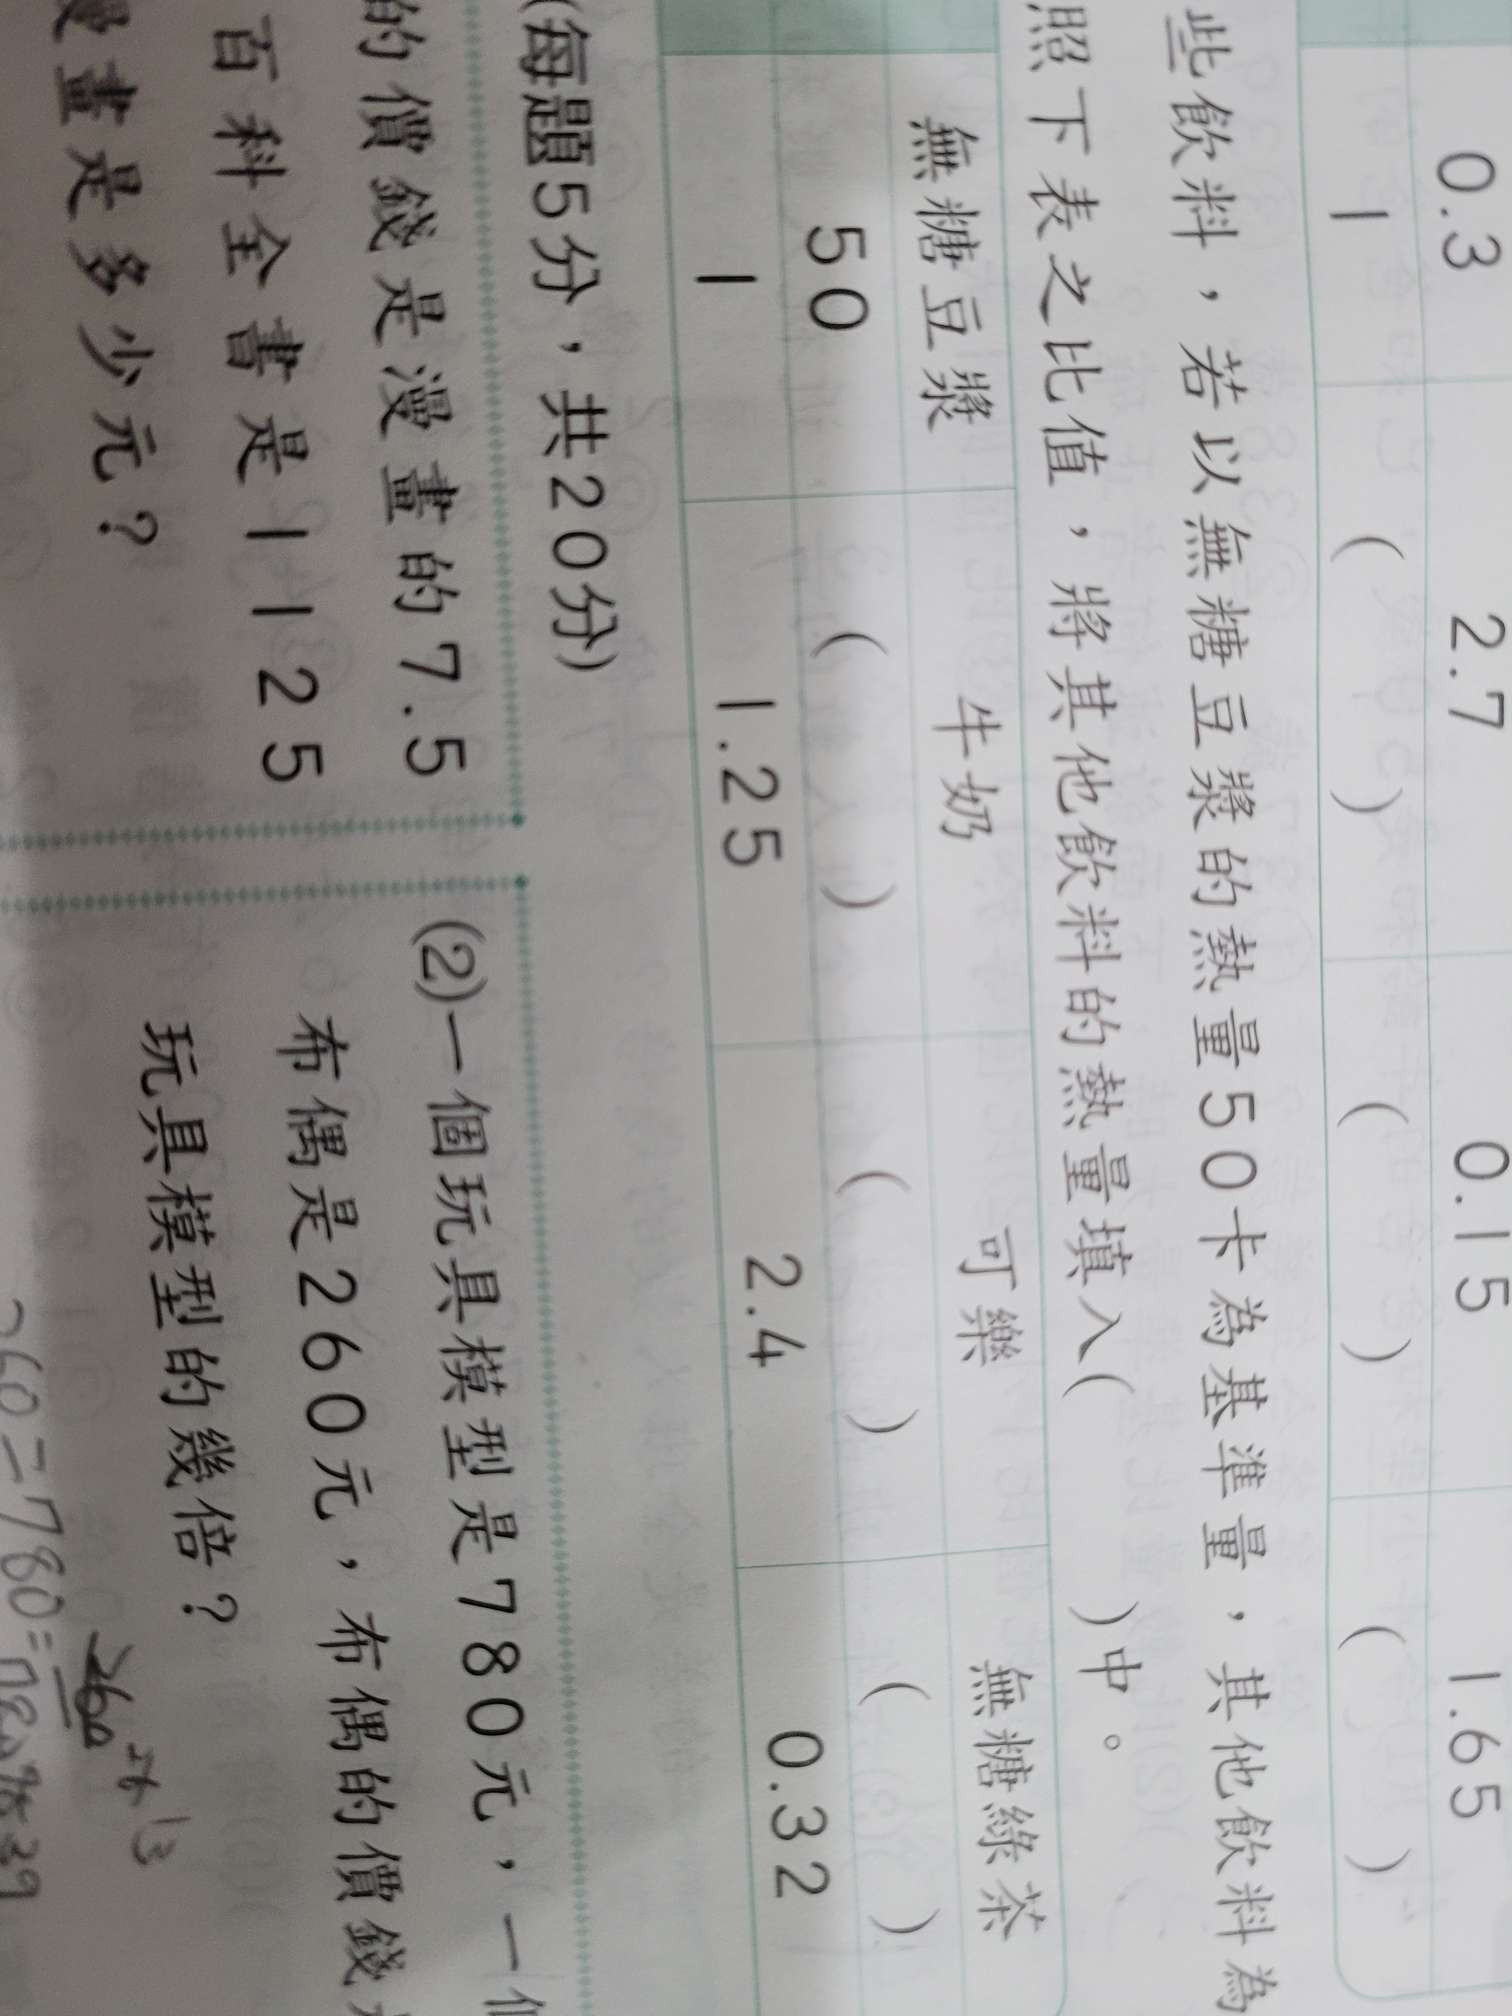 0.3 2.7 0.15 1.65
1 ( ) ( ) ( )
些飲料，若以無糖豆漿的熱量50卡為基準量，其他飲料為
照下表之比值，將其他飲料的熱量填入( )中。
無糖豆漿 牛奶 可樂 無糖綠茶
50 ( ) ( ) ( )
1 1.25 2.4 0.32
(每題5分，共20分)
的價錢是漫畫的7.5
百科全書是1125
漫畫是多少元？
(2)一個玩具模型是780元，一個
布偶是260元，布偶的價錢是
玩具模型的幾倍？
260÷780=